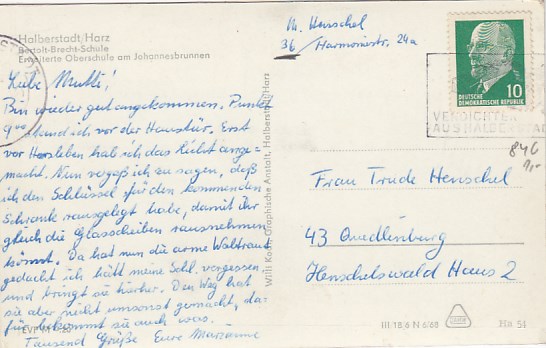 Halberstadt/Harz
Bertolt-Brecht-Schule
Erweiterte Oberschule am Johannesbrunnen
Liebe Mutti!
Bin wieder gut angekommen. Punkt
9⁰⁰ stand ich vor der Haustür. Erst
vor Harsleben hab ich das Licht ange=
macht. Nun vergaß ich zu sagen, daß
ich den Schlüssel für den kommenden
Schrank rausgelegt habe, damit ihr
gleich die Glasscheiben rausnehmen
könnt. Da hat nun die arme Waltraud
gedacht ich hätt meine Schl. vergessen,
und bringt sie hierher. Den Weg hat
sie aber nicht umsonst gemacht, da-
für bekommt sie auch was.
Tausend Grüße Eure Marianne
Willi Koch, Graphische Anstalt, Halberstadt/Harz
M. Henschel
36 / Harmoniestr. 24a
10
DEUTSCHE
DEMOKRATISCHE REPUBLIK
846
Frau Trude Henschel
43 Quedlinburg
Henschelswald Haus 2
III/18/6 N 6/68
Ha 54